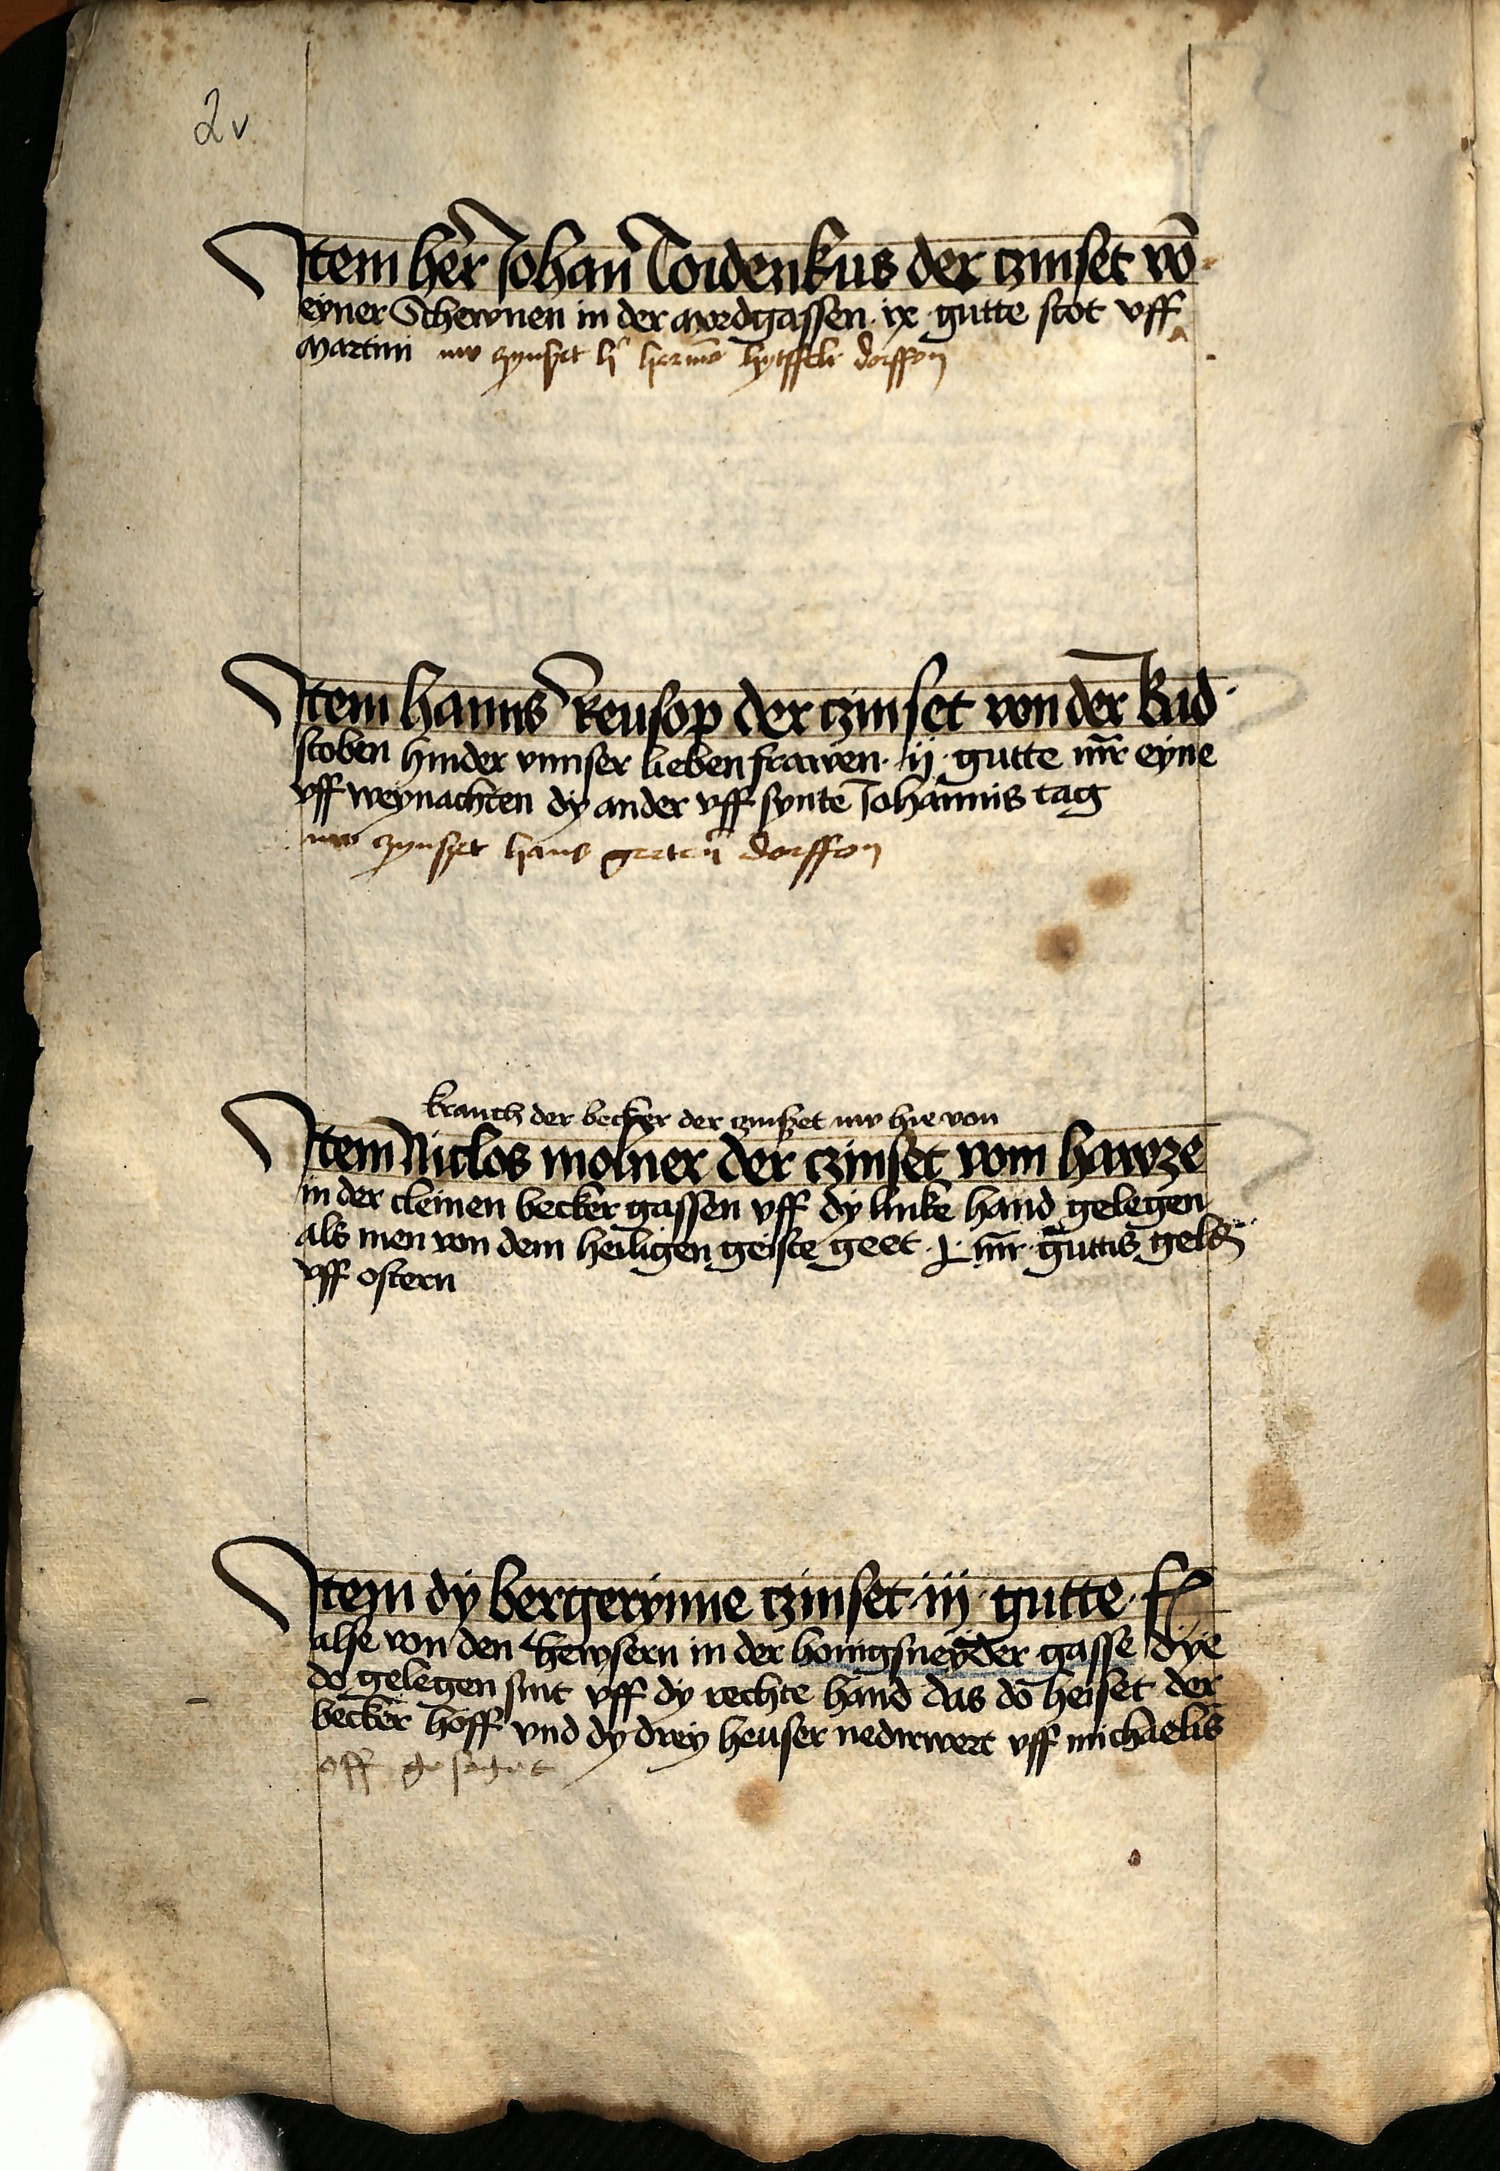 2v
Item her̄ Johan̄ Toidenkus der czinset vō
eyner Schewnen in der mordgassen · ix · gutte scot vff
Martini nw czynszet h̄ hermā dorffon
Item hanns Reusop der czinset von der Bad
stoben hinder vnnser lieben frawen · ij · gutte mr̄ eyne
vff weynachten dy ander vff synte Johannis tag
nw czynszet hans dorffon
kranch der becker der czinszet nw hie von
Item Niclos molner der czinset vom hawze
in der cleinen becker gassen vff dy linke hand gelegen
als men von dem heiligen geiste geet · mr̄ · guttis geld
vff ostern
Item dy bergerynne czinset · iij · gutte · f
alse von den hewsern in der honigsneyder gasse dye
do gelegen sint vff dy rechte hand das do heiset der
becker hoff vnd dy drey heuser nedirwert vff michaelis
off gesaget